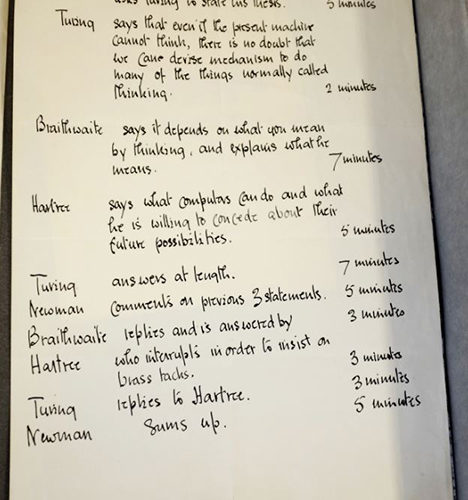 asks Turing to state his thesis. 5 minutes
Turing says that even if the present machine
cannot think, there is no doubt that
we can devise mechanism to do
many of the things normally called
thinking. 2 minutes
Braithwaite says it depends on what you mean
by thinking, and explains what he
means. 7 minutes
Hartree says what computers can do and what
he is willing to concede about their
future possibilities. 5 minutes
Turing answers at length. 7 minutes
Newman comments on previous 3 statements. 5 minutes
Braithwaite replies and is answered by 3 minutes
Hartree who interrupts in order to insist on
brass tacks. 3 minutes
Turing replies to Hartree. 3 minutes
Newman sums up. 5 minutes